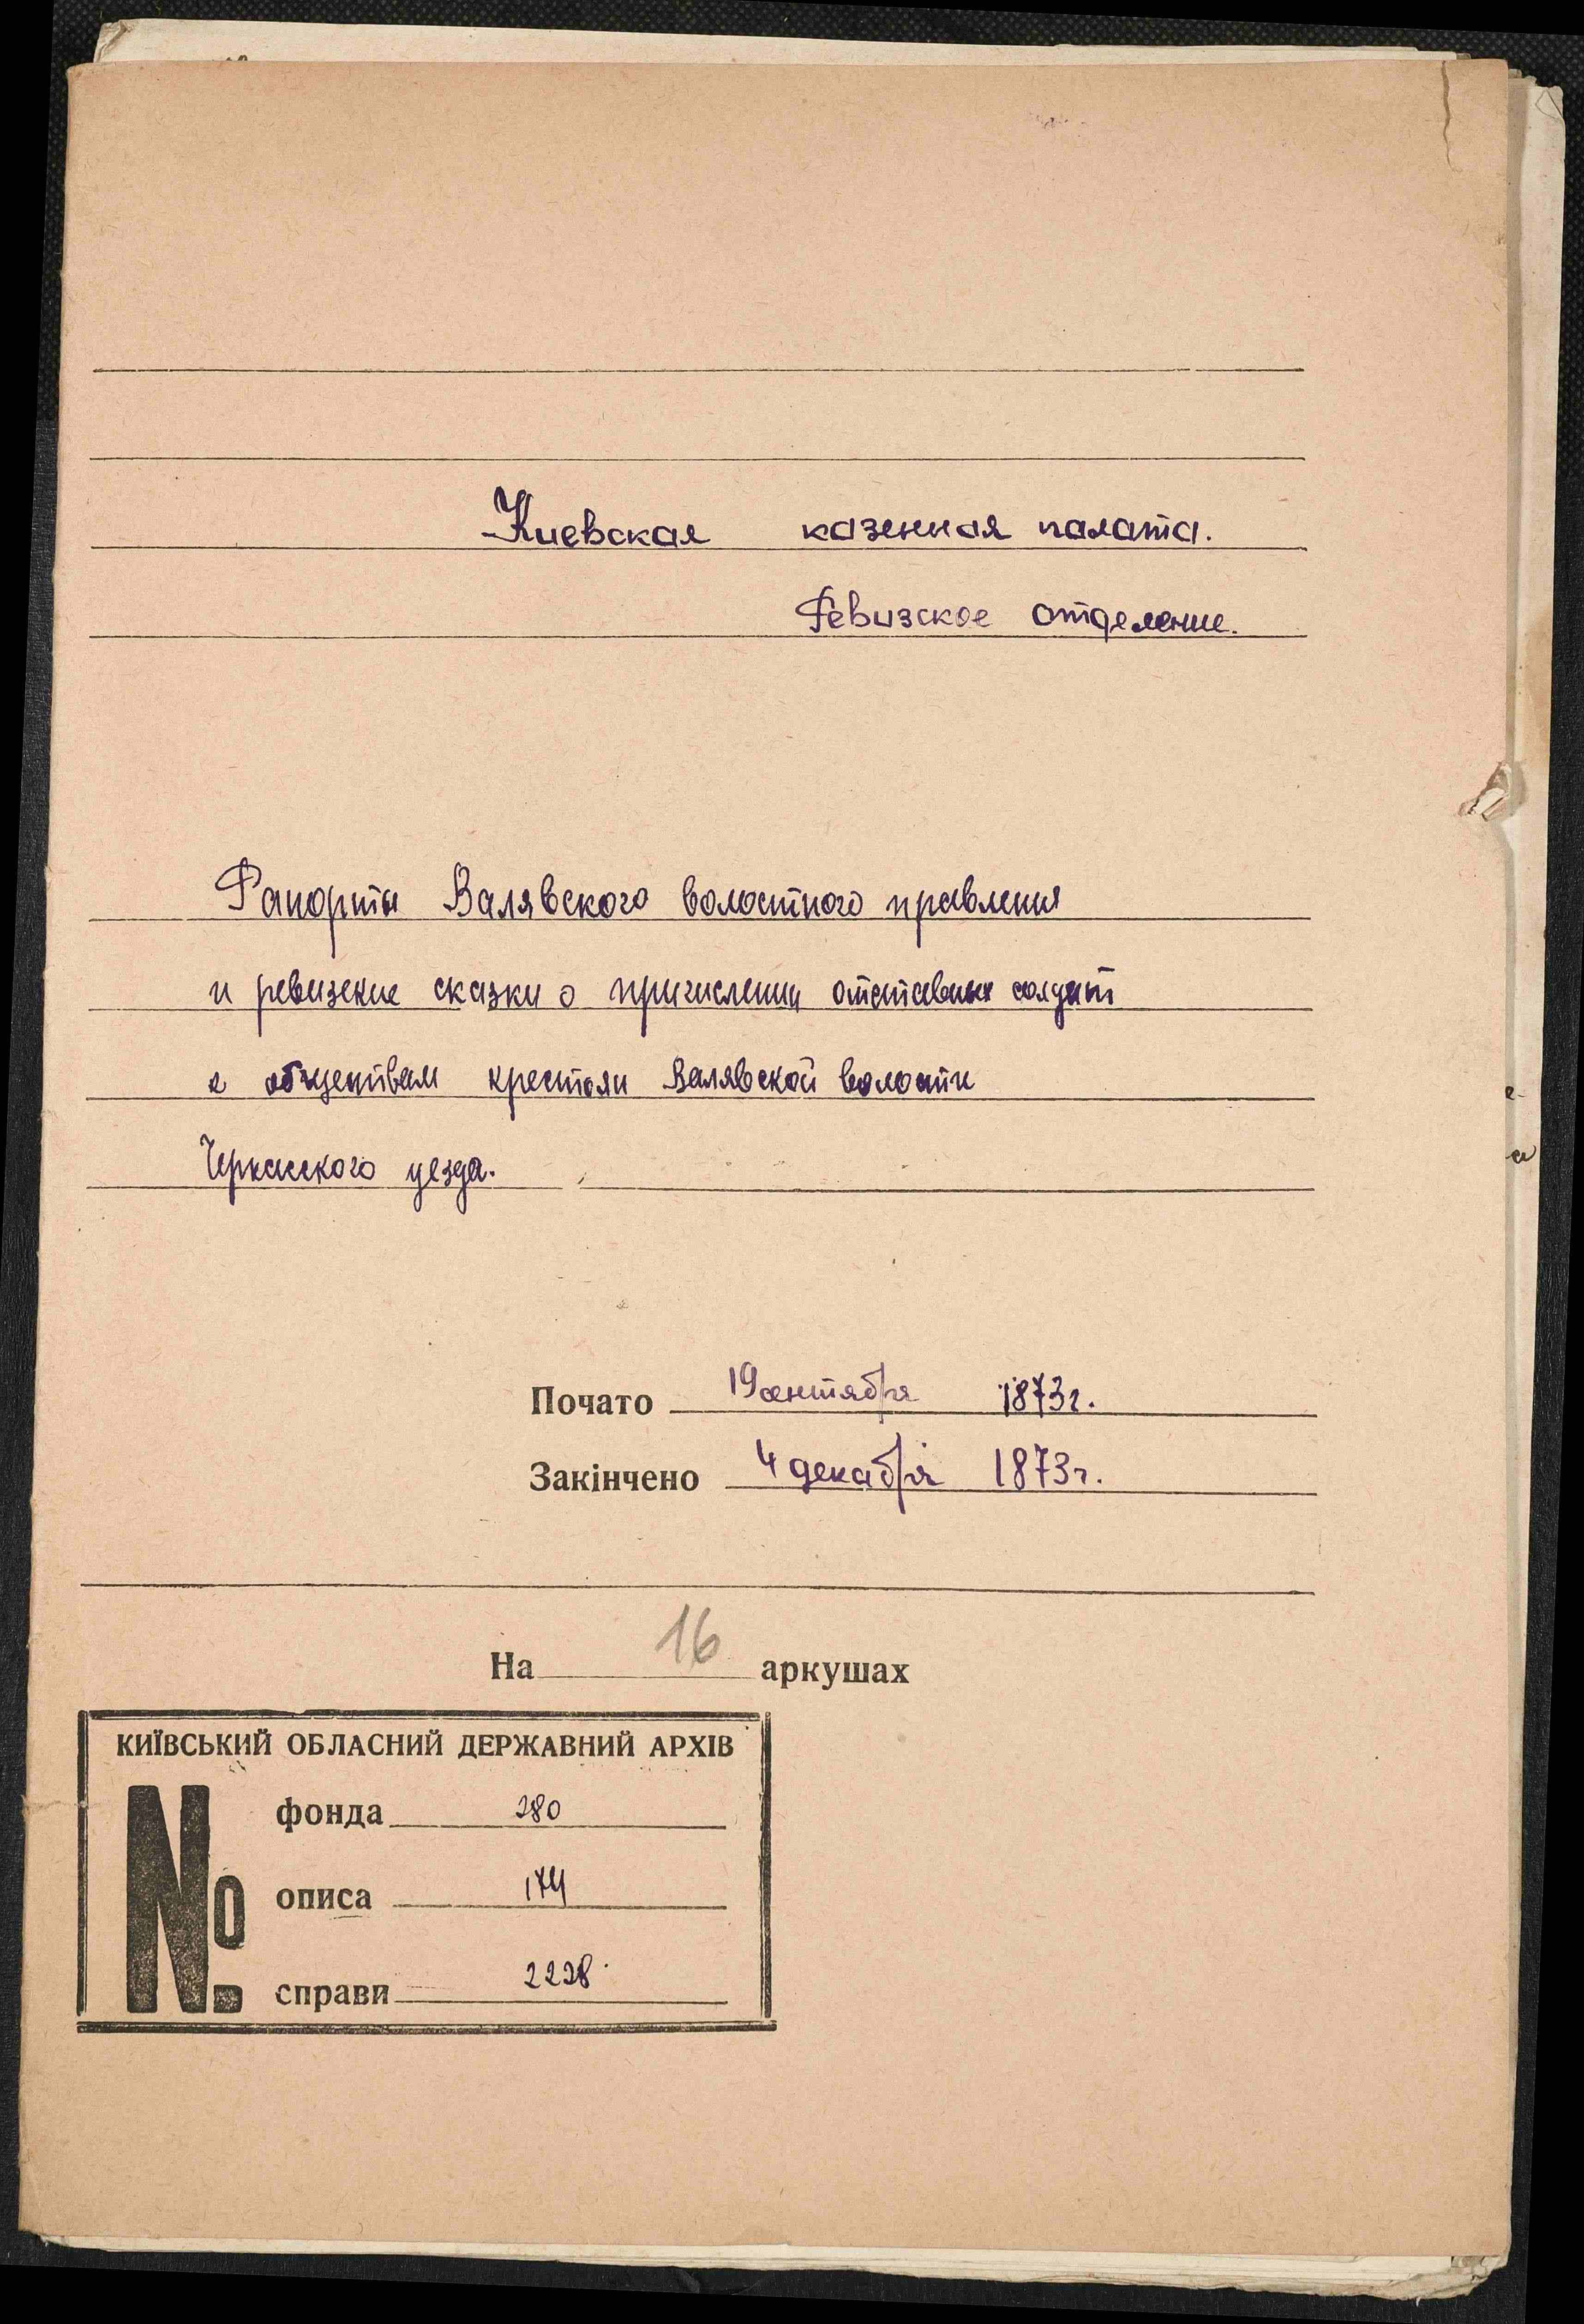 Киевская казенная палата.
Ревизское отделение.
Рапорты Валявского волостного правления
и ревизские сказки о причислении отставных солдат
к обществам крестьян Валявской волости
Черкасского уезда.
Почато 19 сентября 1873г.
Закінчено 4 декабря 1873г.
На 16 аркушах
КИЇВСЬКИЙ ОБЛАСНИЙ ДЕРЖАВНИЙ АРХІВ
№
фонда 280
описа 174
справи 2228